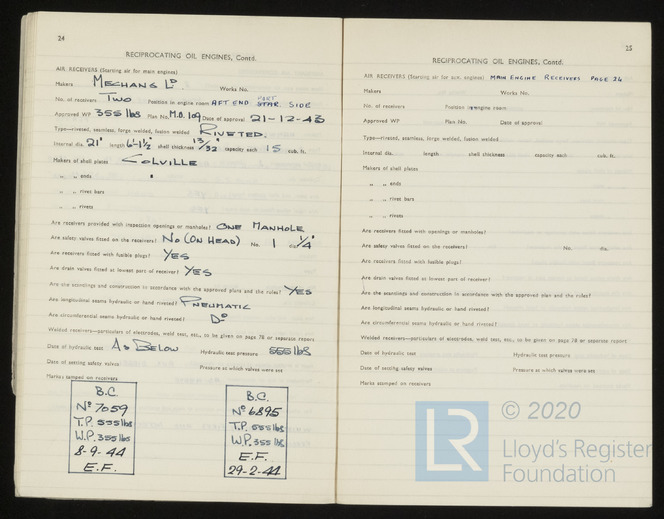 24
RECIPROCATING OIL ENGINES, Contd.
AIR RECEIVERS (Starting air for main engines)
Makers MECHANS Lᴰ Works No.
No. of receivers TWO Position in engine room AFT END PORT STAR. SIDE
Approved WP 355 lbs Plan No. M.D. 109 Date of approval 21-12-43
Type—riveted, seamless, forge welded, fusion welded RIVETED.
Internal dia. 21" length 6'-1½" shell thickness 13/32 capacity each 15 cub. ft.
Makers of shell plates COLVILLE
„ „ ends "
„ „ rivet bars
„ „ rivets
Are receivers provided with inspection openings or manholes? ONE MANHOLE
Are safety valves fitted on the receivers? NO (ON HEAD) No. 1 dia. 1/4
Are receivers fitted with fusible plugs? YES
Are drain valves fitted at lowest part of receiver? YES
Are the scantlings and construction in accordance with the approved plans and the rules? YES
Are longitudinal seams hydraulic or hand riveted? PNEUMATIC
Are circumferential seams hydraulic or hand riveted? Dº
Welded receivers—particulars of electrodes, weld test, etc., to be given on page 78 or separate report
Date of hydraulic test AS BELOW Hydraulic test pressure 555 lbs
Date of setting safety valves Pressure at which valves were set
Marks stamped on receivers
B.C.
Nº 7059
T.P. 555 lbs
W.P. 355 lbs
8-9-44
E.F.
B.C.
Nº 6895
T.P. 555 lbs
W.P. 355 lbs
E.F.
29-2-44
25
RECIPROCATING OIL ENGINES, Contd.
AIR RECEIVERS (Starting air for aux. engines) MAIN ENGINE RECEIVERS PAGE 24
Makers Works No.
No. of receivers Position in engine room
Approved WP Plan No. Date of approval
Type—riveted, seamless, forge welded, fusion welded
Internal dia. length shell thickness capacity each cub. ft.
Makers of shell plates
„ „ ends
„ „ rivet bars
„ „ rivets
Are receivers fitted with inspection openings or manholes?
Are safety valves fitted on the receivers? No. dia.
Are receivers fitted with fusible plugs?
Are drain valves fitted at lowest part of receiver?
Are the scantlings and construction in accordance with the approved plan and the rules?
Are longitudinal seams hydraulic or hand riveted?
Are circumferential seams hydraulic or hand riveted?
Welded receivers—particulars of electrodes, weld test, etc., to be given on page 78 or separate report
Date of hydraulic test Hydraulic test pressure
Date of setting safety valves Pressure at which valves were set
Marks stamped on receivers
LR
© 2020
Lloyd's Register
Foundation